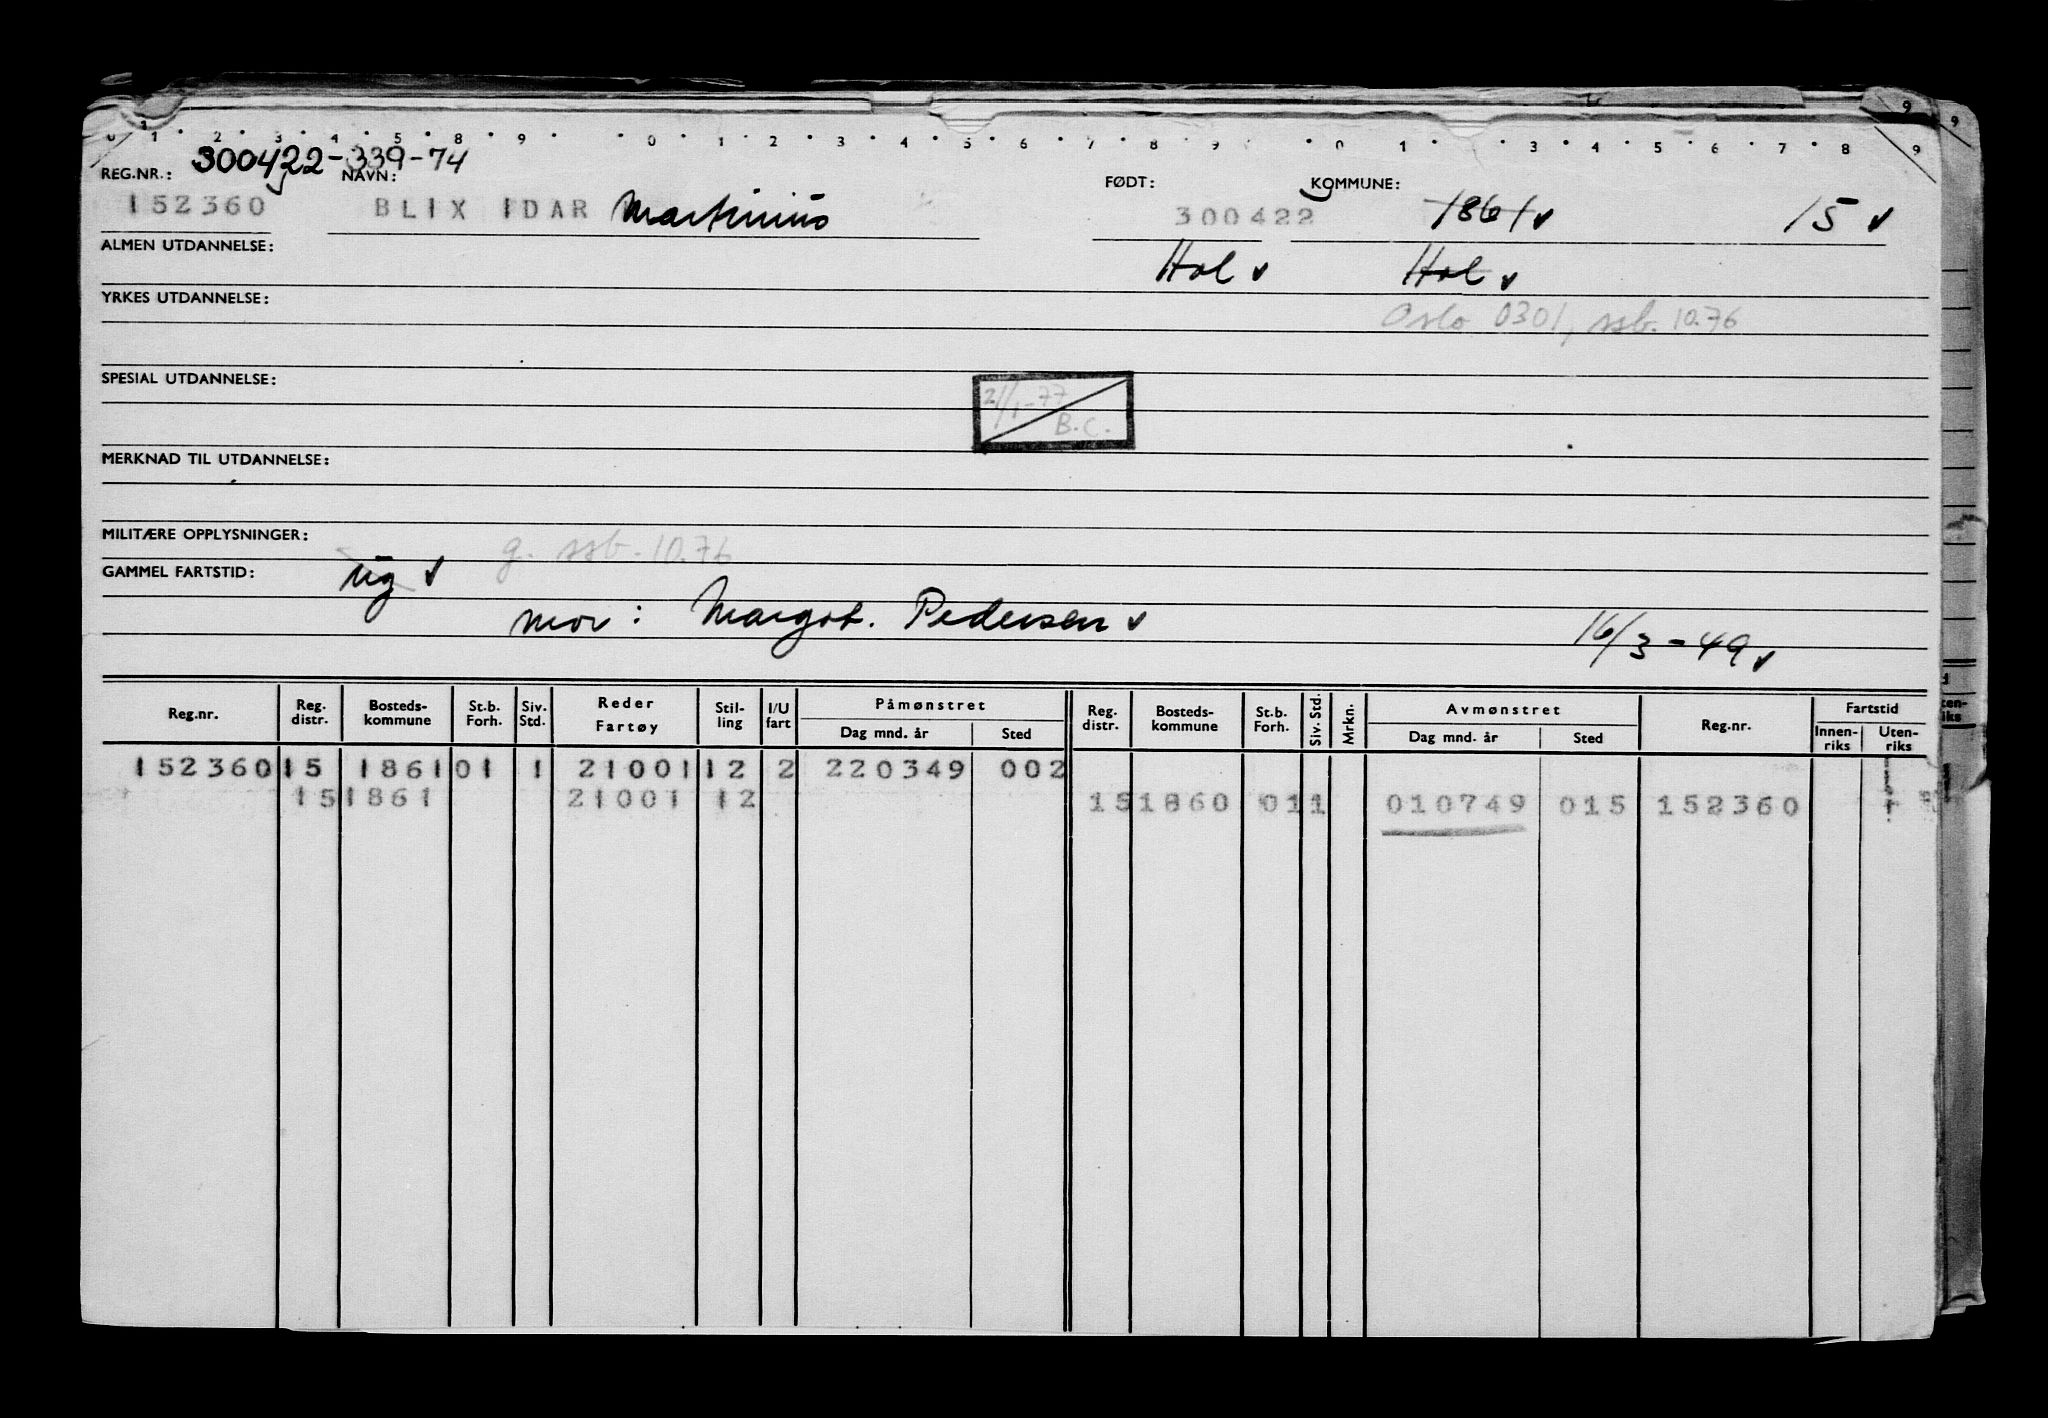 0 1 2 3 4 5 8 9 0 1 2 3 4 5 6 7 8 9 0 1 3 4 5 6 7 8 9
300422-339-74
REG.NR.: NAVN: FØDT: KOMMUNE:
152360 BLIX IDAR Martinius 300422 1861 15
ALMEN UTDANNELSE: Hol Hol
YRKES UTDANNELSE:
Oslo 0301, ssb. 10.76
SPESIAL UTDANNELSE:
21/1-77
B.C.
MERKNAD TIL UTDANNELSE:
MILITÆRE OPPLYSNINGER:
g. ssb. 10.76
GAMMEL FARTSTID: ug
mor: Margot. Pedersen 16/3-49
Reg.nr. Reg. distr. Bosteds-kommune St.b. Forh. Siv. Std. Reder Fartøy Stil-ling I/U fart Påmønstret Dag mnd. år Sted Reg. distr. Bosteds-kommune St.b. Forh. Siv. Std. Mrkn. Avmønstret Dag mnd. år Sted Reg.nr. Fartstid Innen-riks Uten-riks
152360 15 1861 01 1 21001 12 2 220349 002
15 1861 21001 12 15 1860 01 1 010749 015 152360